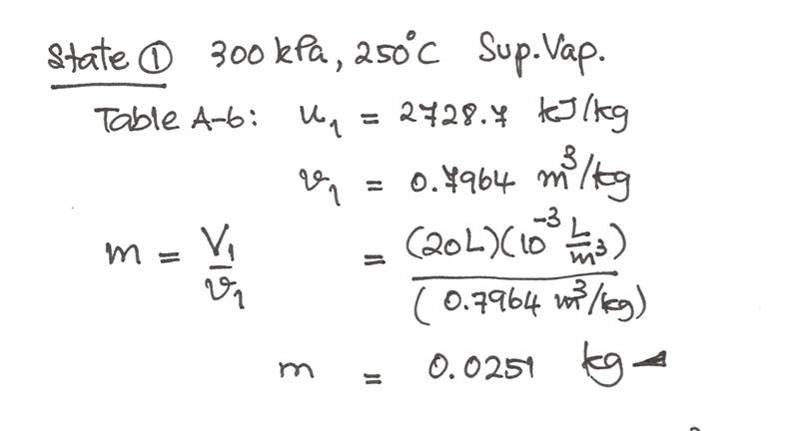 State ① 300 kPa, 250°C Sup. Vap.
Table A-6: u₁ = 2728.7 kJ/kg
v₁ = 0.7964 m³/kg
m = V₁/v₁ = (20L)(10⁻³ L/m³)/(0.7964 m³/kg)
m = 0.0251 kg